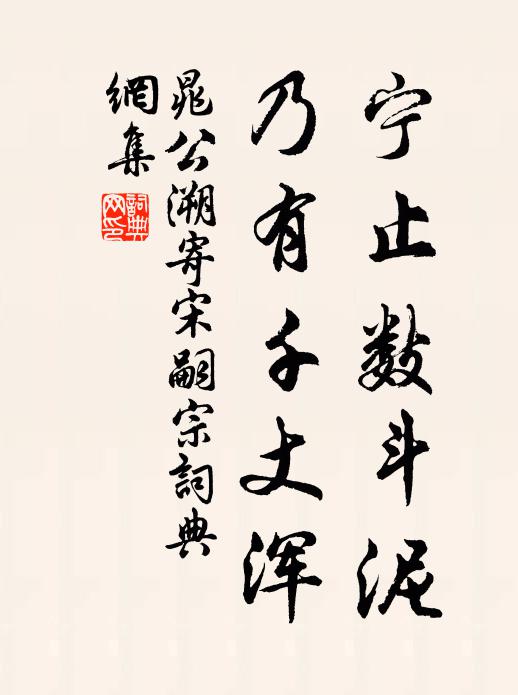 宁止数斗泥
乃有千丈浑
晁公溯寄宋嗣宗詞典
網集
詞典网印